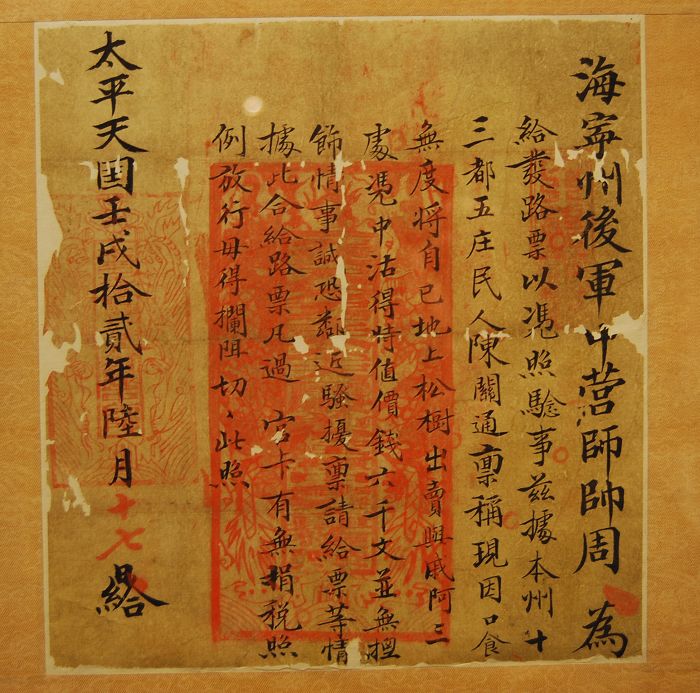 海寧州後軍中营師帥周 為
給發路票以凴照騐事兹據本州十
三都五庄民人陳關通禀稱現因口食
無度将自已地上松樹出賣與戚阿三
處凴中沽得時值價錢六千文並無捏
飾情事誠恐鄰近騷擾禀請給票等情
據此合給路票凡過 官卡有無捐税照
例放行毋得攔阻切、此照
太平天囯壬戌拾貳年陸月十七日給